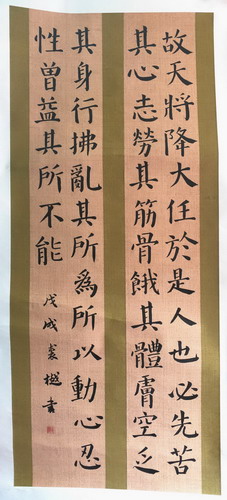 故天将降大任於是人也必先苦
其心志勞其筋骨餓其體膚空乏
其身行拂亂其所為所以動心忍
性曾益其所不能
戊戌 書